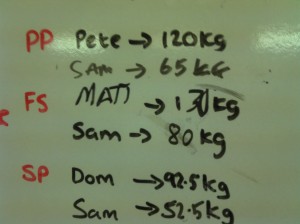 PP Pete → 120kg
SAM → 65kg
FS MATT → 130kg
Sam → 80kg
SP Dom → 92.5kg
Sam → 52.5kg